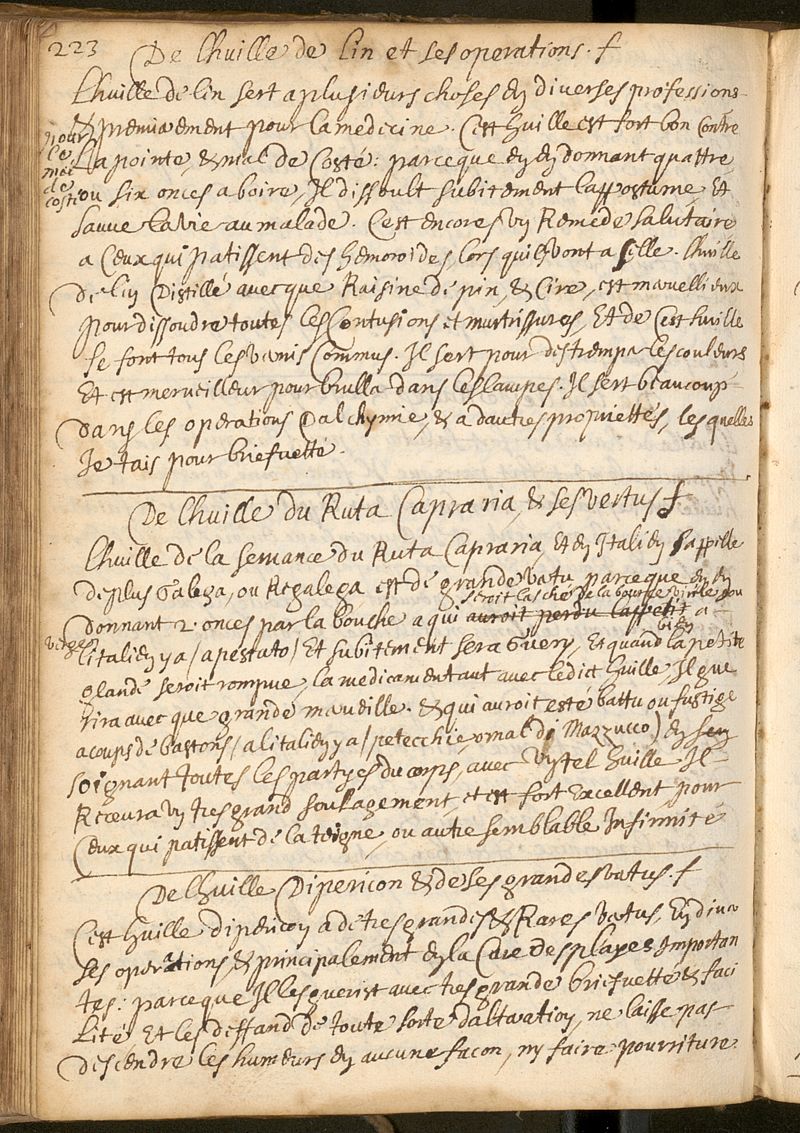 223
De lhuille de lin et ses operations. f
Lhuille de lin sert a plusieurs choses en diverses professions
& premiærement pour la medecine. Cest huille est fort bon Contre
pour le mal de coste
La pointe, & mal de Costé: parceque en en donnant quattre
ou six onces a boire, Il dissoult subitement lappostume, Et
sauue la vie au malade. C'est encores vn Remede salutaire
a Ceux qui patissent des hemoroides, lors quils vont a selle. lhuille
de lin Distillé avecque Raisine de pin, & Cire, est maruellieux
pour dissoudre toutes les Contusions et murtrissures, Et de Cest huille
se font tous les vernis Commus. Il sert pour destremper les couleurs
Et est merueilleux pour brulla dans les lampes. Il sert beaucoup
dans les operations Dalchymie, & a dautres propriettés, les quelles
Je tais pour briefuetté.
De lhuille du Ruta Capraria, & ses vertus f
Lhuille de la semance du Ruta Capraria, Et en Italien sappelle
de plus Galega, ou Regalega est de grande vertu, parceque en en
seroit lasché de la bource virile ou
donnant 2. onces par la bouche a qui auroit perdu lappetit a
verge
bien
litalien ya (apestato) Et subitement sera Guery, Et quand la petite
glande seroit rompue, la medicamentant avec ledict huille, Il gue
rira avec que grande merueille. & qui auroit esté battu ou fustigé
a coups de bastons (a litalien ya (petecchie o mal di Mazzucco) en sen
soignant toutes les partyes du corps, avec vn tel huille Il
Receura vn tres grand soulagement, et est fort Excellent pour
Ceux qui patissent de la teigne, ou autre semblable Infirmité
De lhuille Dipericon & de ses grandes vertus. f
Cest huille dipericon a de tres grandes & Rares vertus, En diuer
ses operations & principalement en la Cure des playes Importan
tes: parceque Il les guerist avec tres grande briefuette & faci
lité, Et les deffand de toute sorte daltaration, ne laisse pas
descendre les humeurs en aucune facon, ny faire pourriture.